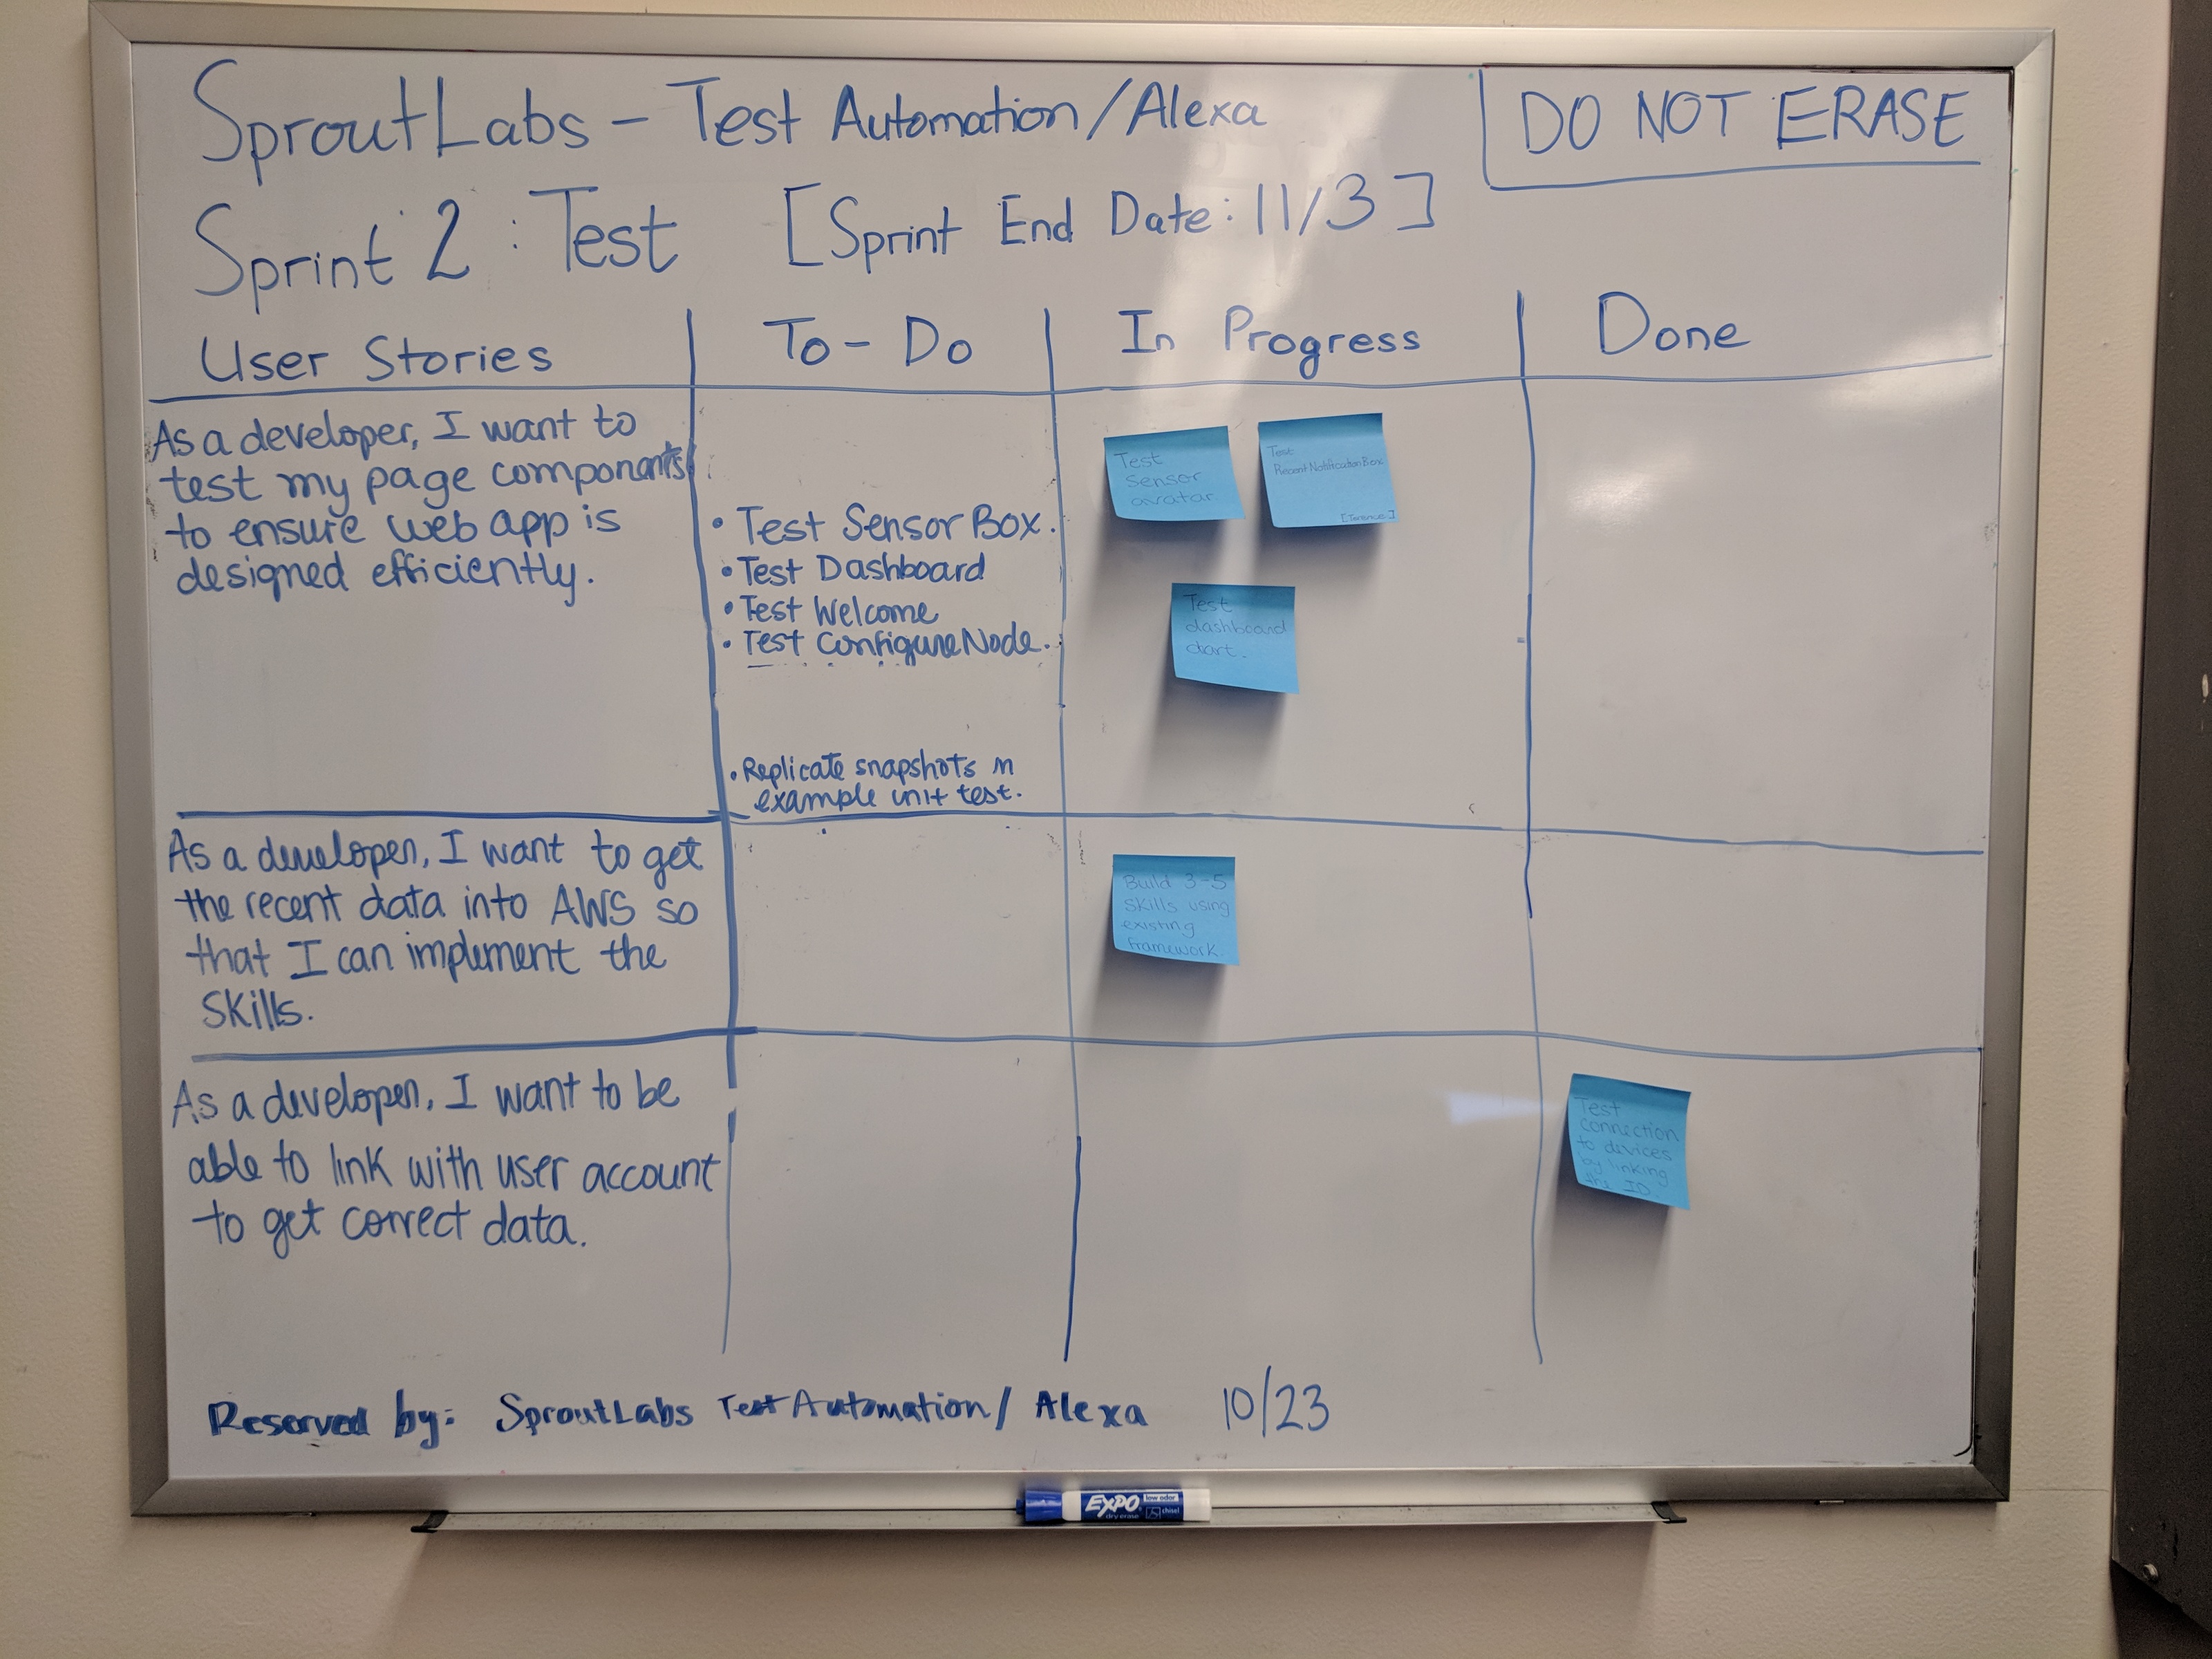 SproutLabs - Test Automation/Alexa
DO NOT ERASE
Sprint 2 : Test [Sprint End Date: 11/3]
User Stories
To-Do
In Progress
Done
As a developer, I want to
test my page componants
to ensure web app is
designed efficiently.
• Test Sensor Box.
• Test Dashboard
• Test Welcome
• Test ConfigureNode.
• Replicate snapshots in
example unit test.
Test
Sensor
avatar
Test
RecentNotificationBox
[Terence]
Test
dashboard
chart.
As a developer, I want to get
the recent data into AWS so
that I can implement the
Skills.
Build 3-5
Skills using
existing
framework.
As a developer, I want to be
able to link with user account
to get correct data.
Test
connection
to devices
by linking
the ID.
Reserved by: SproutLabs Test Automation/ Alexa 10/23
EXPO
low odor
dry erase
chisel